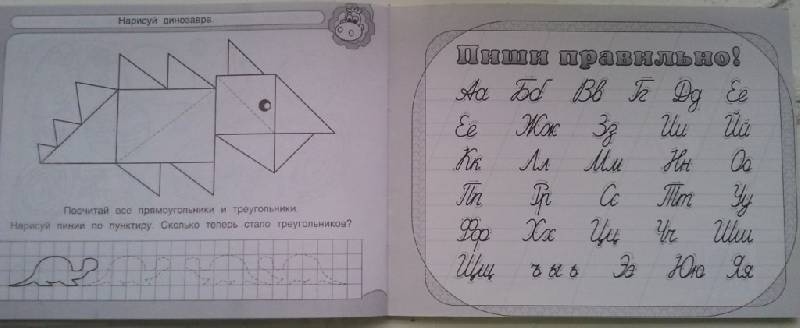 Нарисуй динозавра.
Посчитай все прямоугольники и треугольники.
Нарисуй линии по пунктиру. Сколько теперь стало треугольников?
Пиши правильно!
Аа Бб Вв Гг Дд Ее
Ёё Жж Зз Ии Йй
Кк Лл Мм Нн Оо
Пп Рр Сс Тт Уу
Фф Хх Цц Чч Шш
Щщ ъ ы ь Ээ Юю Яя